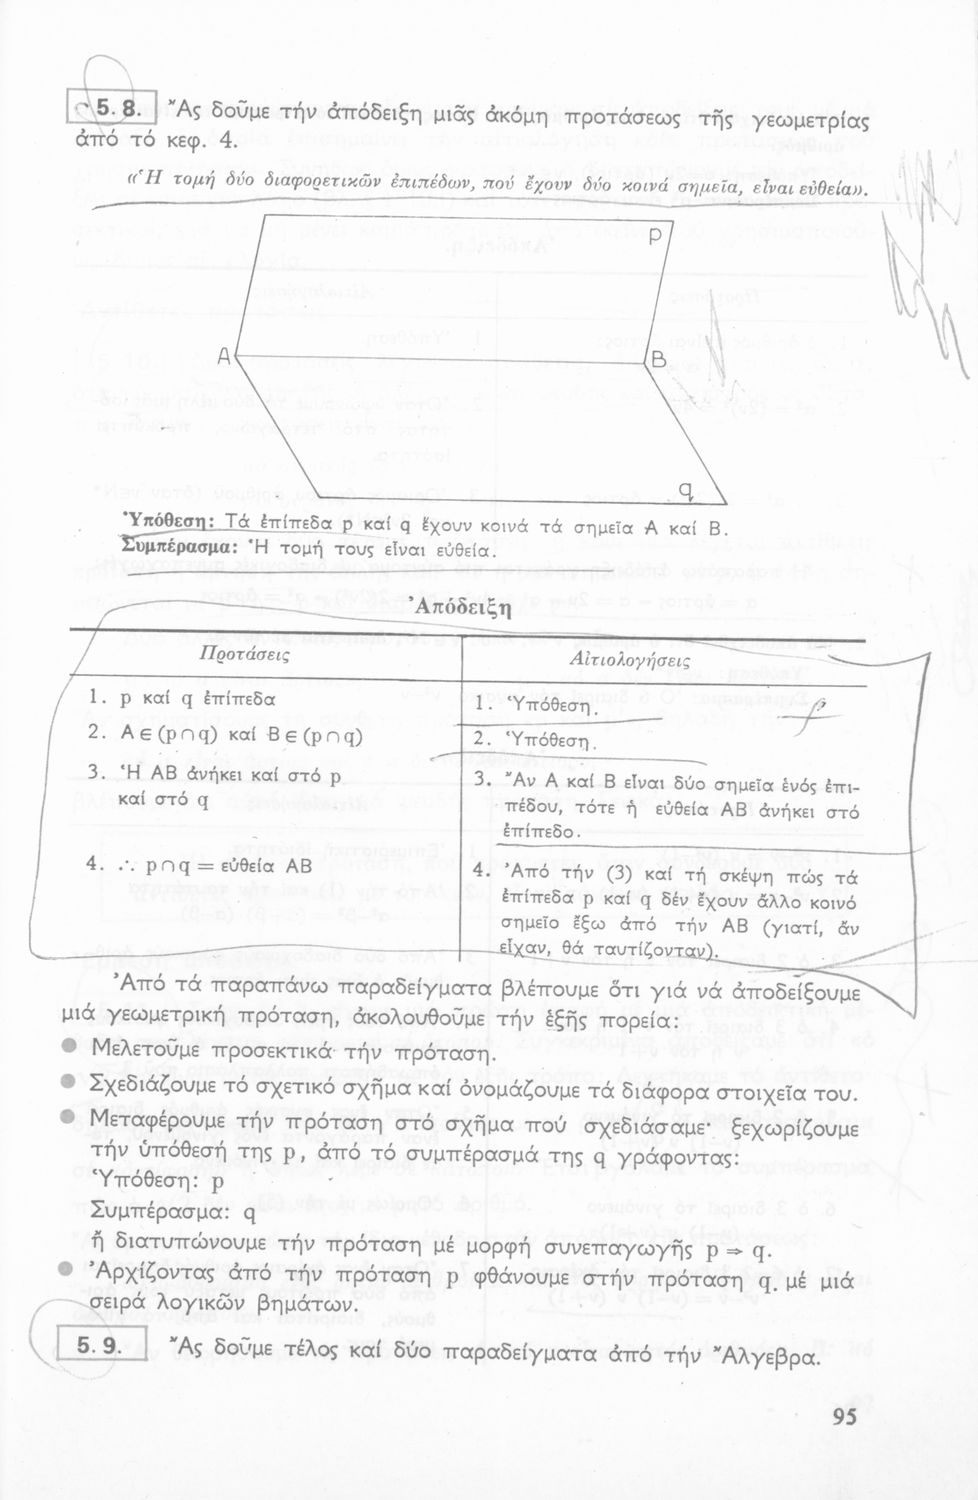 5.8. Ἄς δοῦμε τήν ἀπόδειξη μιᾶς ἀκόμη προτάσεως τῆς γεωμετρίας
ἀπό τό κεφ. 4.
«Ἡ τομή δύο διαφορετικῶν ἐπιπέδων, πού ἔχουν δύο κοινά σημεῖα, εἶναι εὐθεία».
p
A
B
q
Ὑπόθεση: Τά ἐπίπεδα p καί q ἔχουν κοινά τά σημεῖα A καί B.
Συμπέρασμα: Ἡ τομή τους εἶναι εὐθεία.
Ἀπόδειξη
Προτάσεις
1. p καί q ἐπίπεδα
2. A ∈ (p∩q) καί B ∈ (p∩q)
3. Ἡ AB ἀνήκει καί στό p
καί στό q
4. ∴ p∩q = εὐθεία AB
Αἰτιολογήσεις
1. Ὑπόθεση.
2. Ὑπόθεση.
3. Ἄν A καί B εἶναι δύο σημεῖα ἑνός ἐπι-
πέδου, τότε ἡ εὐθεία AB ἀνήκει στό
ἐπίπεδο.
4. Ἀπό τήν (3) καί τή σκέψη πώς τά
ἐπίπεδα p καί q δέν ἔχουν ἄλλο κοινό
σημεῖο ἔξω ἀπό τήν AB (γιατί, ἄν
εἶχαν, θά ταυτίζονταν).
Ἀπό τά παραπάνω παραδείγματα βλέπουμε ὅτι γιά νά ἀποδείξουμε
μιά γεωμετρική πρόταση, ἀκολουθοῦμε τήν ἑξῆς πορεία:
● Μελετοῦμε προσεκτικά τήν πρόταση.
● Σχεδιάζουμε τό σχετικό σχῆμα καί ὀνομάζουμε τά διάφορα στοιχεῖα του.
● Μεταφέρουμε τήν πρόταση στό σχῆμα πού σχεδιάσαμε· ξεχωρίζουμε
τήν ὑπόθεσή της p, ἀπό τό συμπέρασμά της q γράφοντας:
Ὑπόθεση: p
Συμπέρασμα: q
ἤ διατυπώνουμε τήν πρόταση μέ μορφή συνεπαγωγῆς p ⇒ q.
● Ἀρχίζοντας ἀπό τήν πρόταση p φθάνουμε στήν πρόταση q μέ μιά
σειρά λογικῶν βημάτων.
5.9. Ἄς δοῦμε τέλος καί δύο παραδείγματα ἀπό τήν Ἄλγεβρα.
95